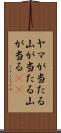 ヤマが当たる
山が当たる山
が当る((